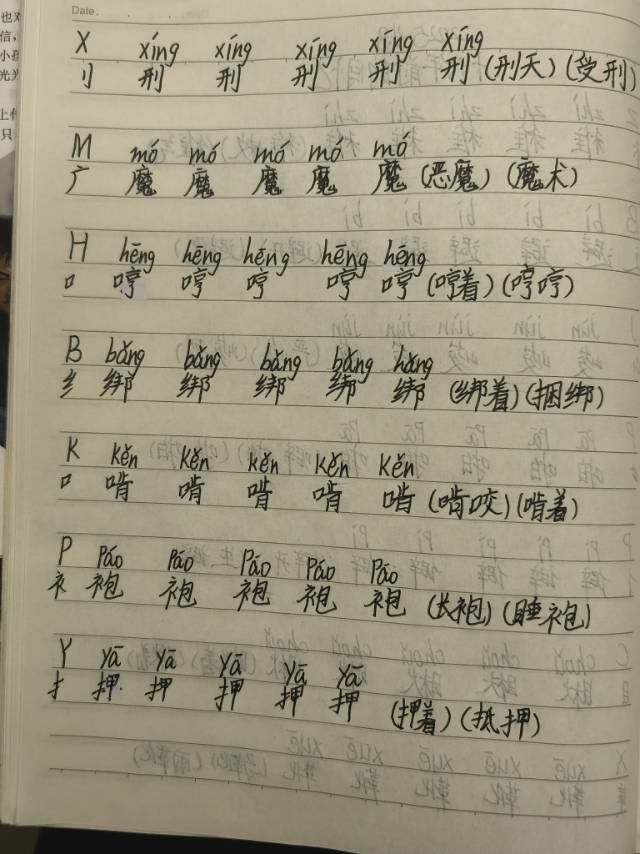 Date.
X xíng xíng xíng xíng xíng
刂 刑 刑 刑 刑 刑 (刑天) (受刑)
M mó mó mó mó mó
广 魔 魔 魔 魔 魔 (恶魔) (魔术)
H hēng hēng hēng hēng hēng
口 哼 哼 哼 哼 哼 (哼着) (哼哼)
B bǎng bǎng bǎng bǎng bǎng
纟 绑 绑 绑 绑 绑 (绑着) (捆绑)
K kěn kěn kěn kěn kěn
口 啃 啃 啃 啃 啃 (啃咬) (啃着)
P Páo Páo Páo Páo Páo
衤 袍 袍 袍 袍 袍 (长袍) (睡袍)
Y yā yā yā yā yā
扌 押 押 押 押 押 (押着) (抵押)